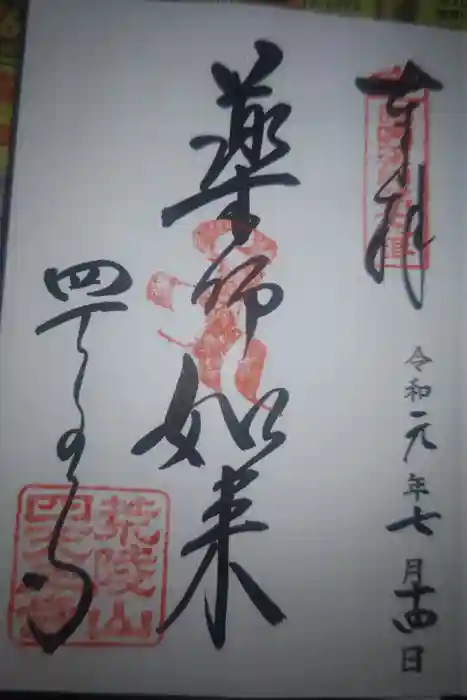 奉拝
令和元年七月十四日
薬師如来
四天王寺
荒陵山
四天王寺